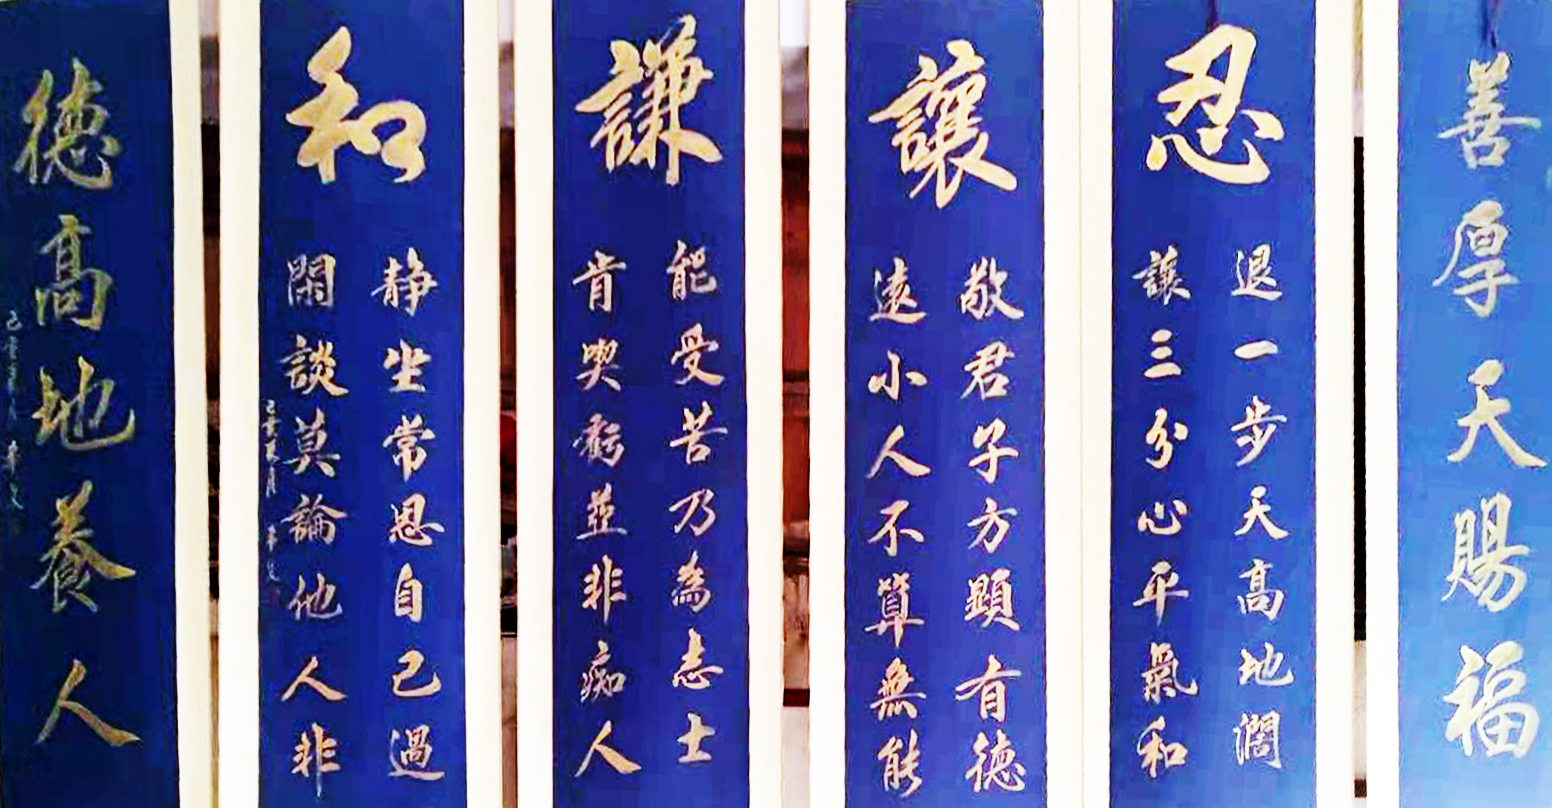 善厚天賜福
忍
退一步天高地濶
讓三分心平氣和
讓
敬君子方顯有德
遠小人不算無能
謙
能受苦乃為志士
肯喫虧並非痴人
和
静坐常思自己過
閑談莫論他人非
德高地養人